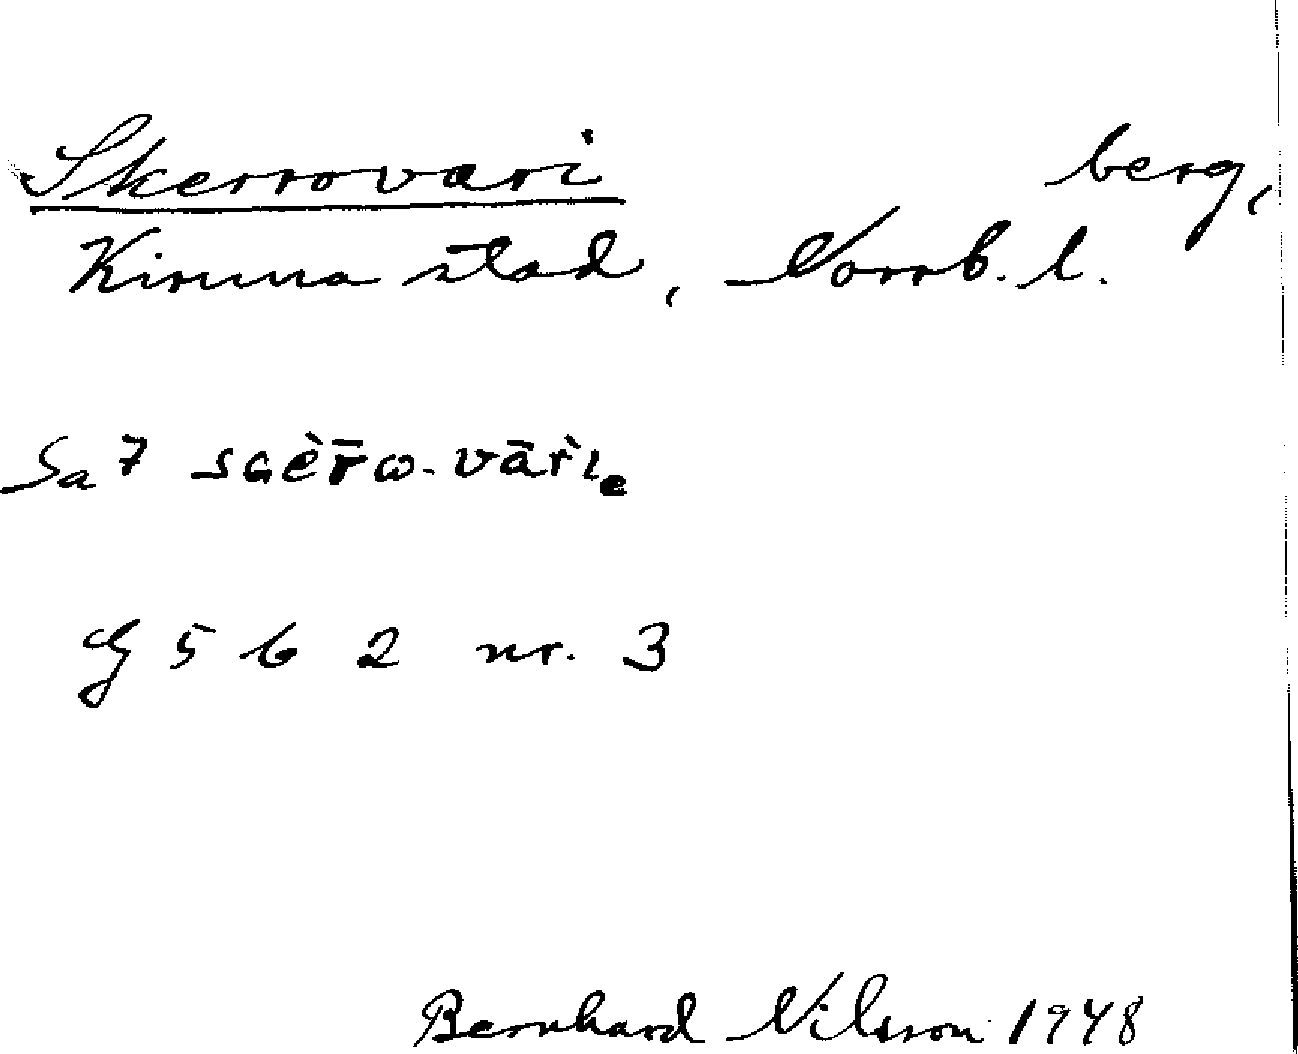 Skerrovari berg,
Kiruna stad, Norrb. l.
Sa 7 sɢèr̄ω-vār̀ıₑ
G 5 b 2 nr. 3
Bernhard Nilsson 1948